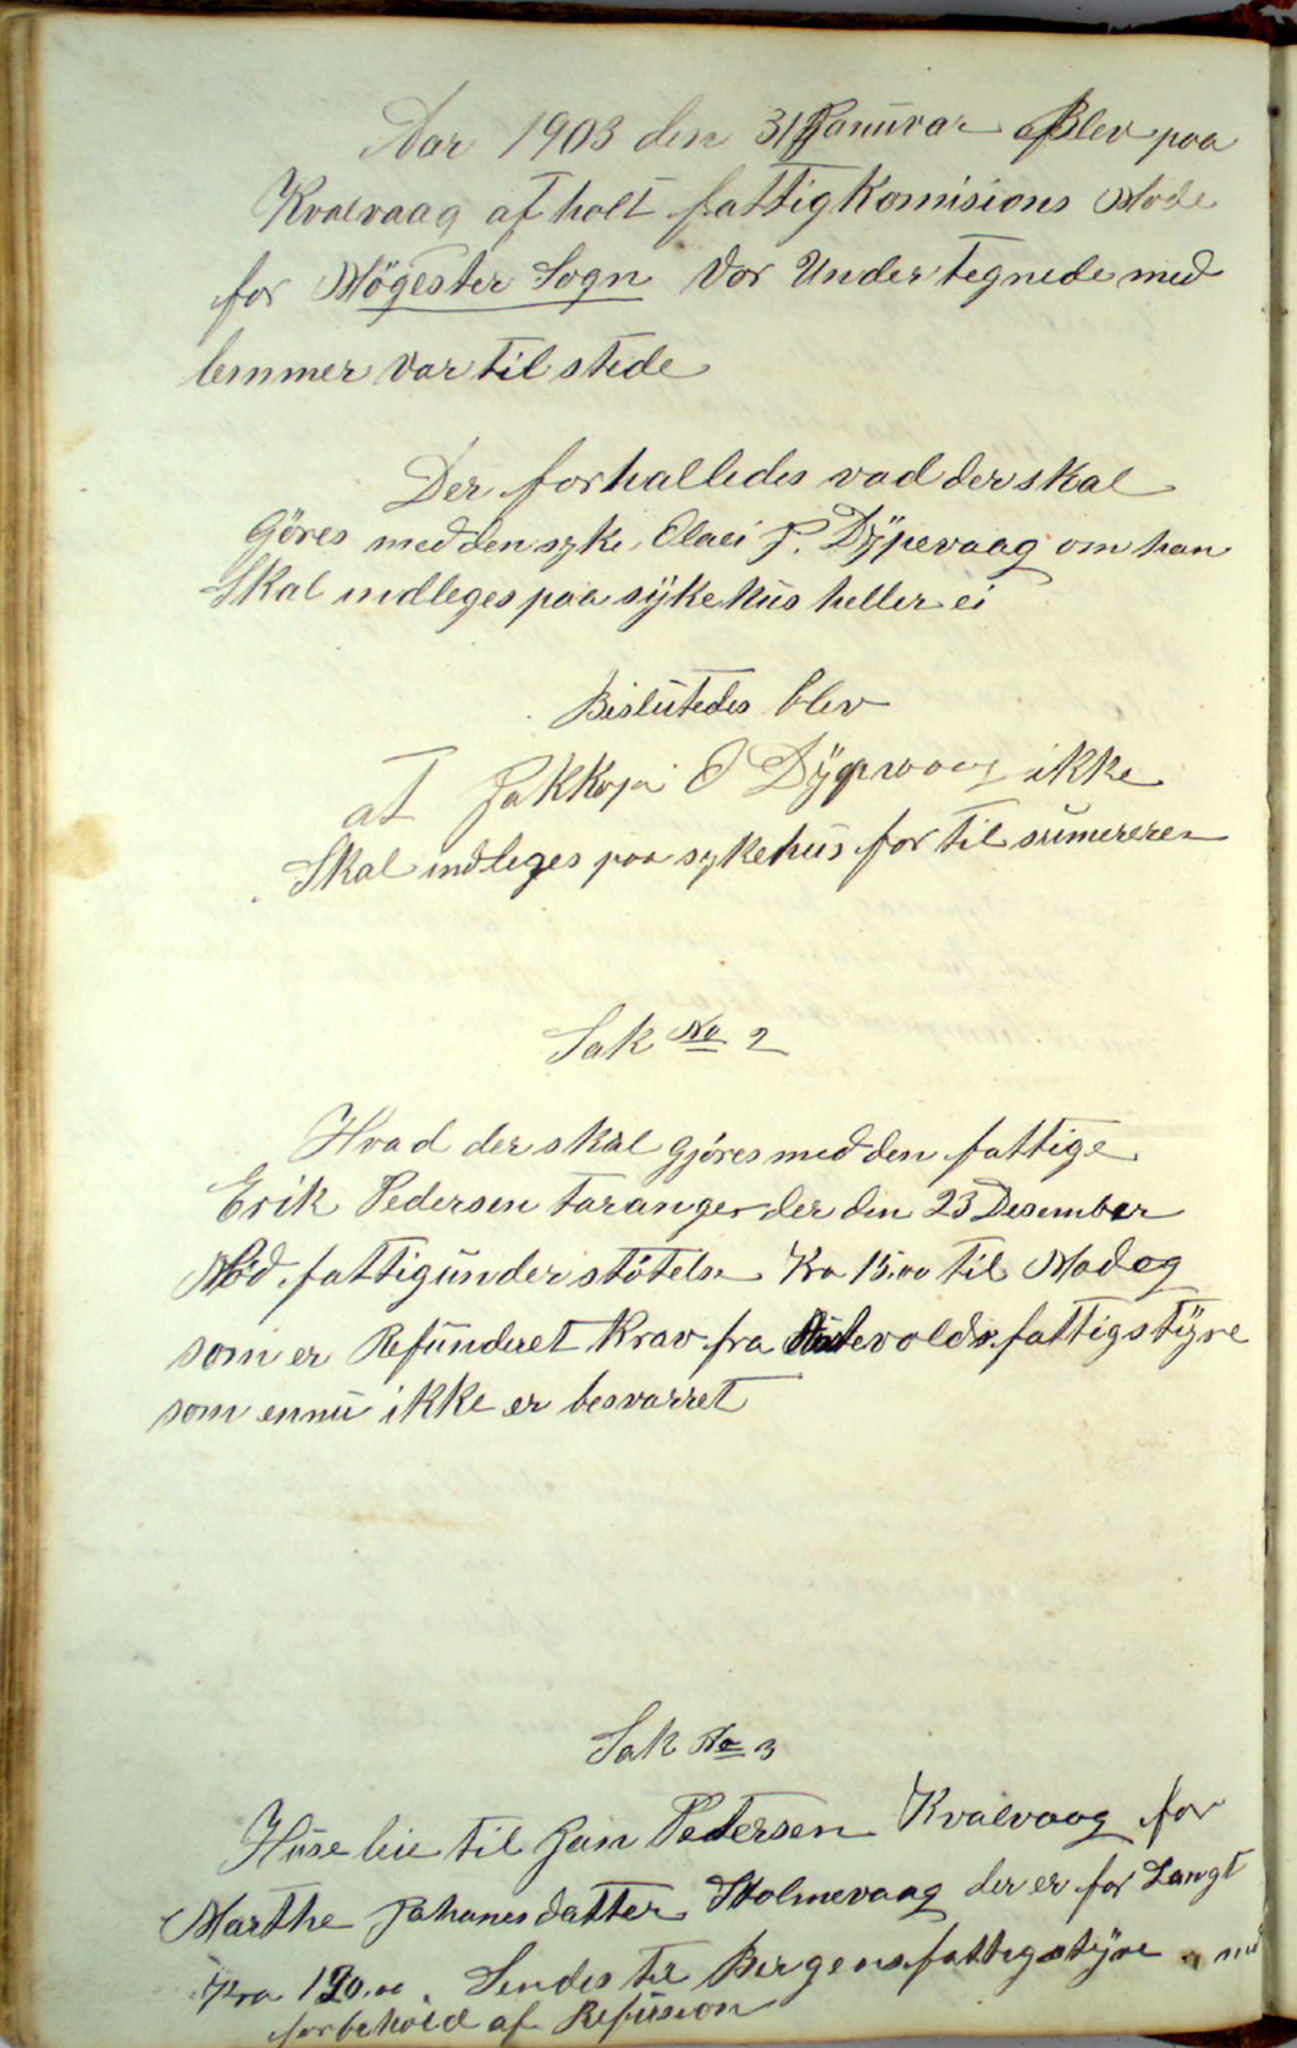 Aar 1903 den 31 Januvar Blev paa
Kvalvaag afholt fattigKomisions Mode
for Mögester Sogn Vor Undertegnede med
lemmer var til stede
Der forhalledes vad der skal
Göres med den syke P. Dÿpevaag om han
Skal indleges paa sÿkehus heller ei
Beslutedes blev
at O Dÿpvaag ikke
Skal indleges paa sykehus for til
Sak No 2
Hvad der skal gjöres med den fattige
Erik Pedersen Taranger der den 23 Desember
fattigunderstötelse Kro 15.00 til Mad og
som er Refunderet Krav fra fattigstÿre
som ennu ikke er besvarret
Sak No 3
Huseleie til Jan Petersen Kvalvaag for
Marthe Johanesdatter Stolmevaag der er for Langt
Kro 120.00. Sendes til Bergens fattigstÿre med
forbehold af Refusion